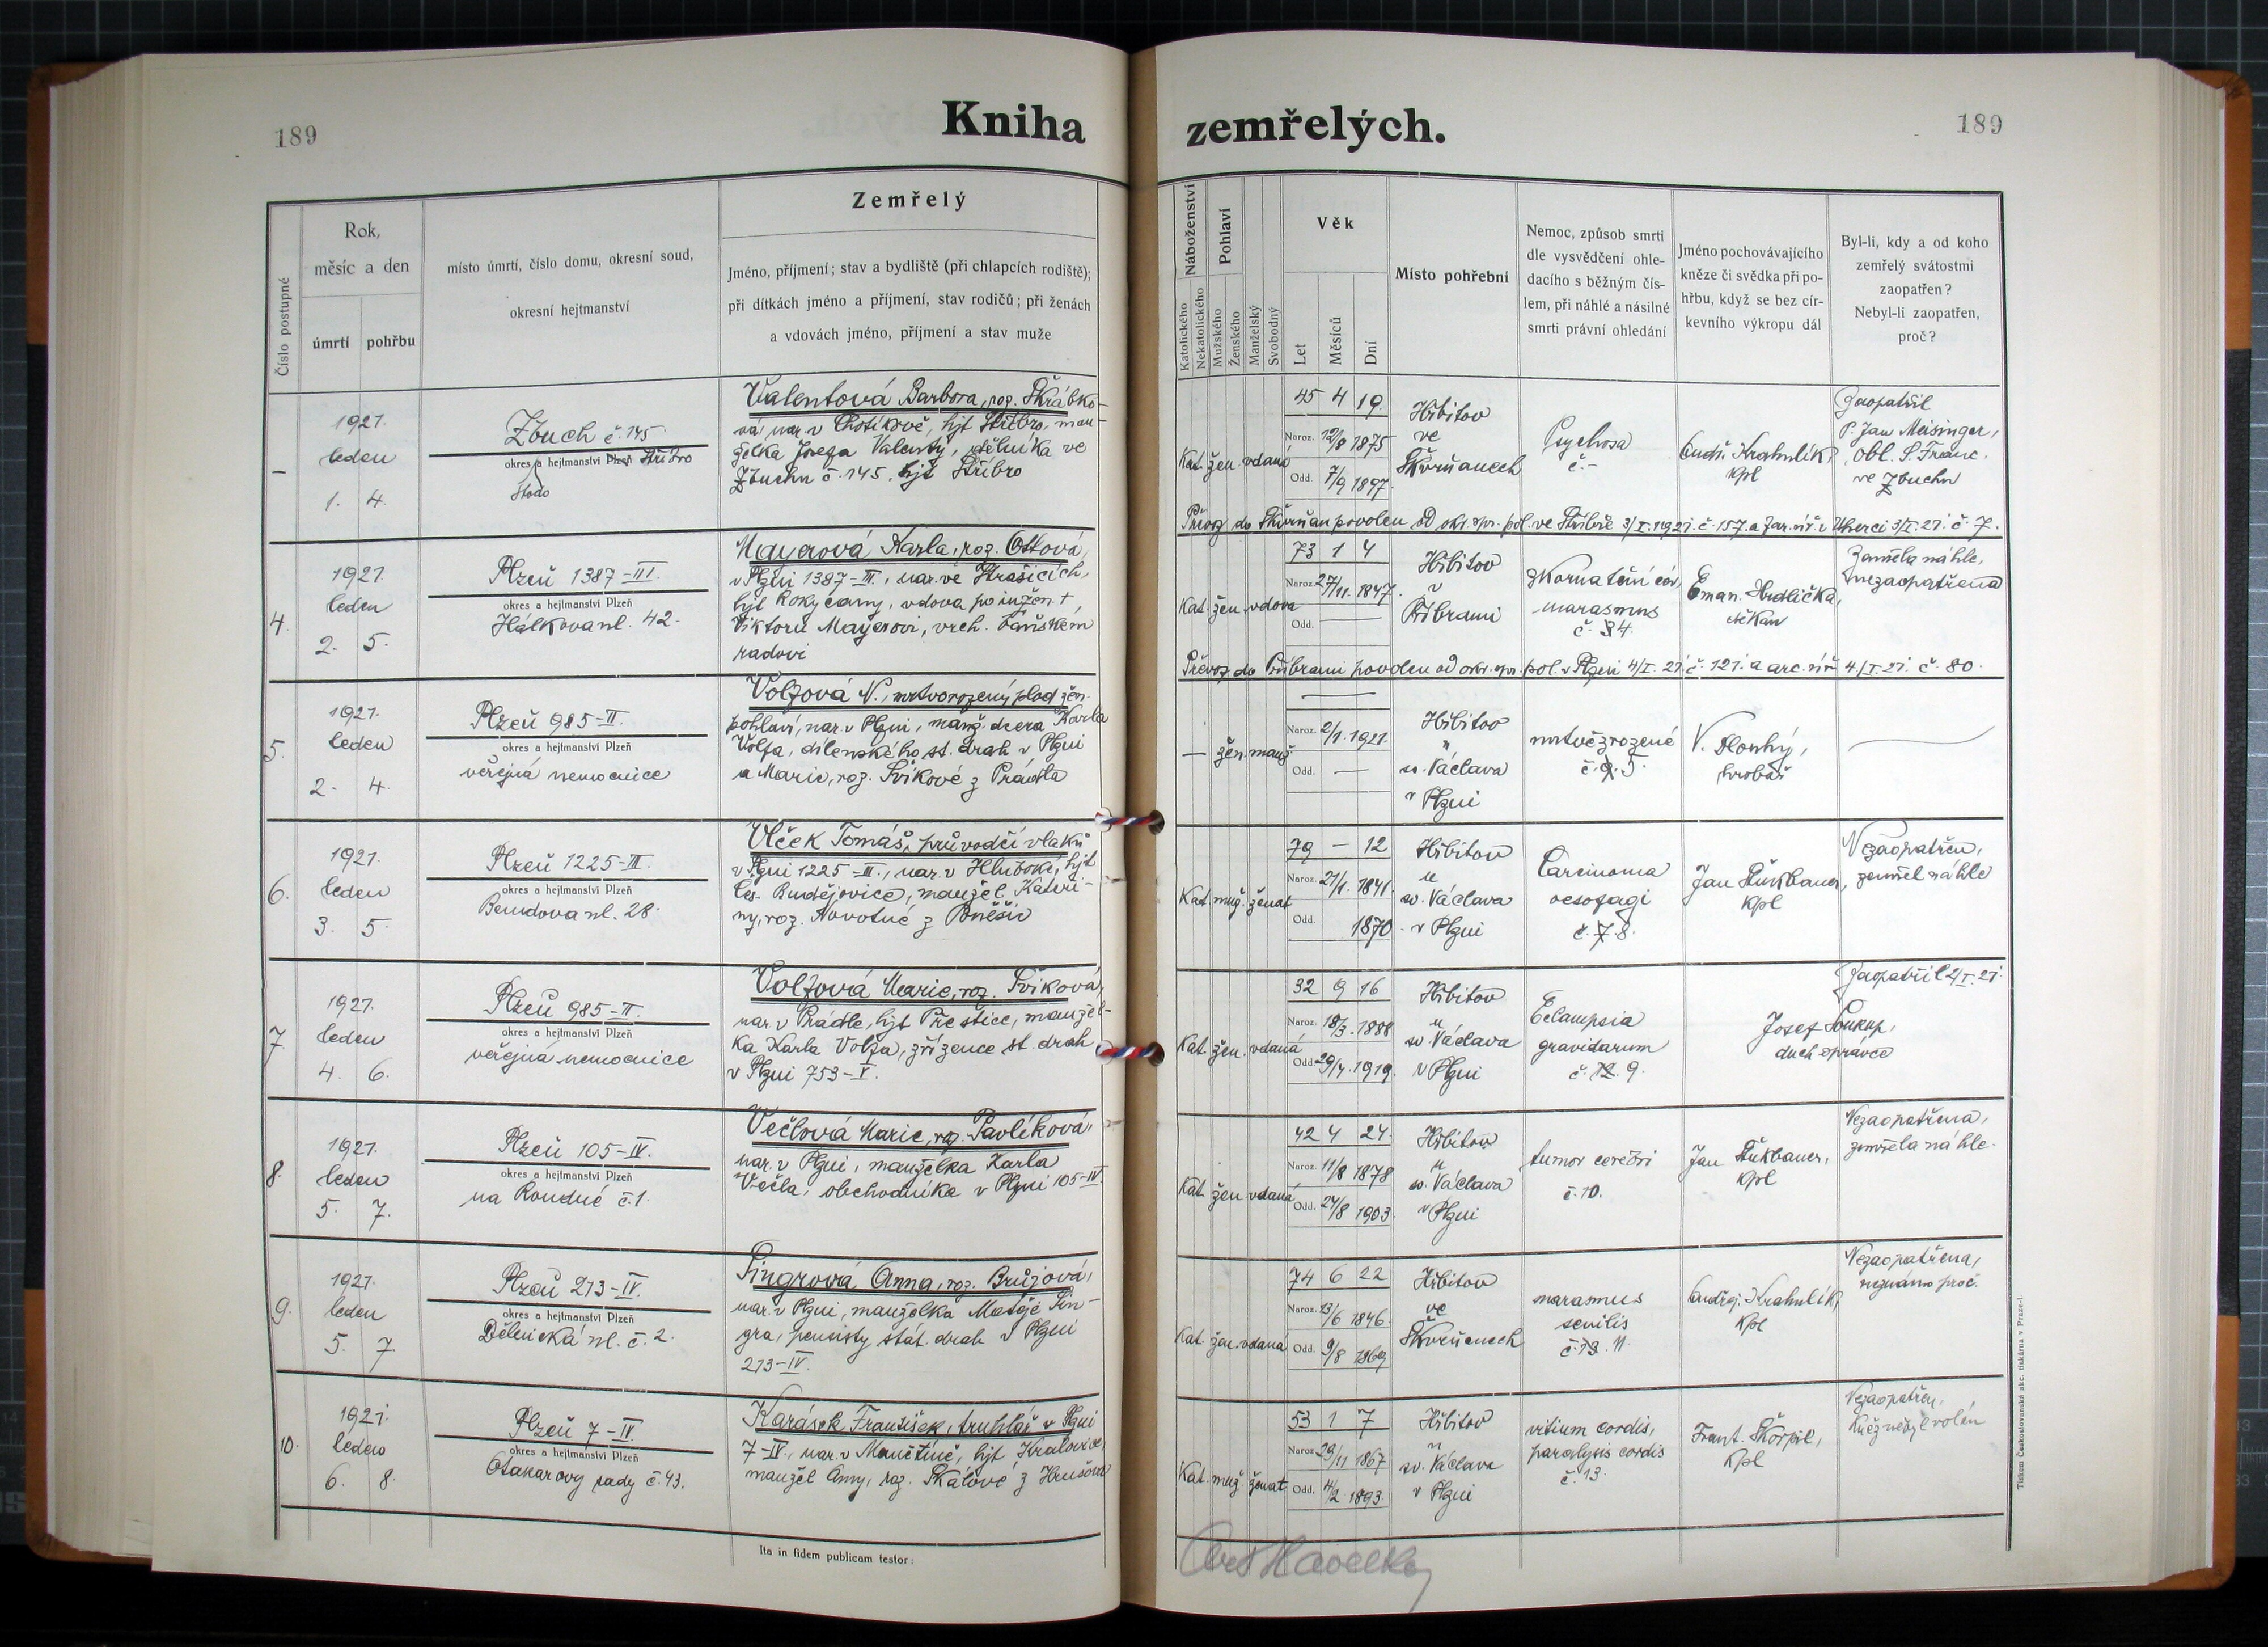 189
Kniha
zemřelých.
189
Číslo postupné
Rok,
měsíc a den
úmrtí
pohřbu
místo úmrtí, číslo domu, okresní soud,
okresní hejtmanství
Zemřelý
Jméno, příjmení; stav a bydliště (při chlapcích rodiště);
při dítkách jméno a příjmení, stav rodičů; při ženách
a vdovách jméno, příjmení a stav muže
Náboženství
Katolického
Nekatolického
Pohlaví
Mužského
Ženského
Manželský
Svobodný
Věk
Let
Měsíců
Dní
Místo pohřební
Nemoc, způsob smrti
dle vysvědčení ohle-
dacího s běžným čís-
lem, při náhlé a násilné
smrti právní ohledání
Jméno pochovávajícího
kněze či svědka při po-
hřbu, když se bez cír-
kevního výkropu dál
Byl-li, kdy a od koho
zemřelý svátostmi
zaopatřen?
Nebyl-li zaopatřen,
proč?
–
1921.
leden
1. 4.
Zbuch č. 145
okres a hejtmanství Plzeň Stříbro
Stodo
Valentová Barbora, roz. Škrábko-
vá nar. v Chotíkově, hjt Stříbro, man-
želka Josefa Valenty, dělníka ve
Zbuchu č. 145, hjt Stříbro
Kat. žen. vdaná
45 4 19.
Naroz. 12/8 1875
Odd. 7/9 1897.
Hřbitov
ve
Skvrňanech
Psychosa
č. –
Ondř. Krahulík,
kpl
Zaopatřil
P. Jan Meisinger,
Obl. S. Franc.
ve Zbuchu
Převoz do Skvrňan povolen od okr. spr. pol. ve Stříbře 3/I. 1921. č. 157. a far. úř. v Úherci 3/I. 21. č. 7.
4.
1921.
leden
2. 5.
Plzeň 1387-III.
okres a hejtmanství Plzeň
Hálkova ul. 42.
Mayerová Karla, roz. Ottová,
v Plzni 1387-III., nar. ve Strašicích,
hjt Rokycany, vdova po inžen. †
Viktoru Mayerovi, vrch. báňském
radovi
Kat. žen. vdova
73 1 4
Naroz. 27/11. 1847.
Odd. —
Hřbitov
v
Příbrami
Zkornatění cév,
marasmus
č. 34.
Eman. Hrdlička,
děkan
Zemřela náhle,
nezaopatřena
Převoz do Příbrami povolen od okr. spr. pol. v Plzni 4/I. 21. č. 121. a arc. úř. 4/I. 21. č. 80.
5.
1921.
leden
2. 4.
Plzeň 985-II.
okres a hejtmanství Plzeň
veřejná nemocnice
Volfová N., mrtvorozený plod žen.
pohlaví, nar. v Plzni, manž. dcera Karla
Volfa, dílenského st. drah v Plzni
a Marie, roz. Svíkové z Prádla
— žen. manž
Naroz. 2/1. 1921.
Odd. —
Hřbitov
u
sv. Václava
v Plzni
mrtvězrozené
č. 5.
V. Dlouhý,
hrobař
6.
1921.
leden
3. 5.
Plzeň 1225-III.
okres a hejtmanství Plzeň
Bendova ul. 28.
Vlček Tomáš, průvodčí vlaků
v Plzni 1225-III., nar. v Hluboké, hjt
Čes. Budějovice, manžel Kateři-
ny, roz. Novotné z Poněšic
Kat. muž. ženat
79 — 12
Naroz. 21/1. 1841.
Odd. 1870.
Hřbitov
u
sv. Václava
v Plzni
Carcinoma
oesofagi
č. 7. 8.
kpl
Nezaopatřen,
zemřel náhle
7.
1921.
leden
4. 6.
Plzeň 985-II.
okres a hejtmanství Plzeň
veřejná nemocnice
Volfová Marie, roz. Svíková,
nar. v Prádle, hjt Přeštice, manžel-
ka Karla Volfa, zřízence st. drah
v Plzni 753-V.
Kat. žen. vdaná
32 9 16
Naroz. 18/3. 1888
Odd. 29/4. 1919.
Hřbitov
u
sv. Václava
v Plzni
Eclampsia
gravidarum
č. 12. 9.
Zaopatřil 2/I. 21.
Josef Soukup,
duch. správce
8.
1921.
leden
5. 7.
Plzeň 105-IV.
okres a hejtmanství Plzeň
na Roudné č. 1.
Večlová Marie, roz. Pavlíková,
nar. v Plzni, manželka Karla
Večla, obchodníka v Plzni 105-IV.
Kat. žen. vdaná
42 4 24.
Naroz. 11/8 1878
Odd. 24/8 1903.
Hřbitov
u
sv. Václava
v Plzni
tumor cerebri
č. 10.
kpl
Nezaopatřena,
zemřela náhle.
9.
1921.
leden
5. 7.
Plzeň 213-IV.
okres a hejtmanství Plzeň
Dělnická ul. č. 2.
Singrová Anna, roz. Brůjová,
nar. v Plzni, manželka Matěje Sin-
gra, pensisty stát. drah v Plzni
213-IV.
Kat. žen. vdaná
74 6 22
Naroz. 13/6 1846.
Odd. 9/8 1869
Hřbitov
ve
Skvrňanech
marasmus
senilis
č. 13. 11.
Ondřej Krahulík,
kpl
Nezaopatřena,
neznámo proč.
10.
1921.
leden
6. 8.
Plzeň 7-IV.
okres a hejtmanství Plzeň
Otakarovy sady č. 43.
Karásek František, truhlář v Plzni
7-IV., nar. v Manětíně, hjt Kralovice,
manžel Anny, roz. Skálové z Hrušova
Kat. muž. ženat
53 1 7
Naroz. 29/11 1867
Odd. 4/2 1893.
Hřbitov
u
sv. Václava
v Plzni
vitium cordis,
paralysis cordis
č. 13.
Frant. Škorpil,
kpl
Nezaopatřen,
kněz nebyl volán
Ita in fidem publicam testor:
Tiskem Československá akc. tiskárna v Praze-I